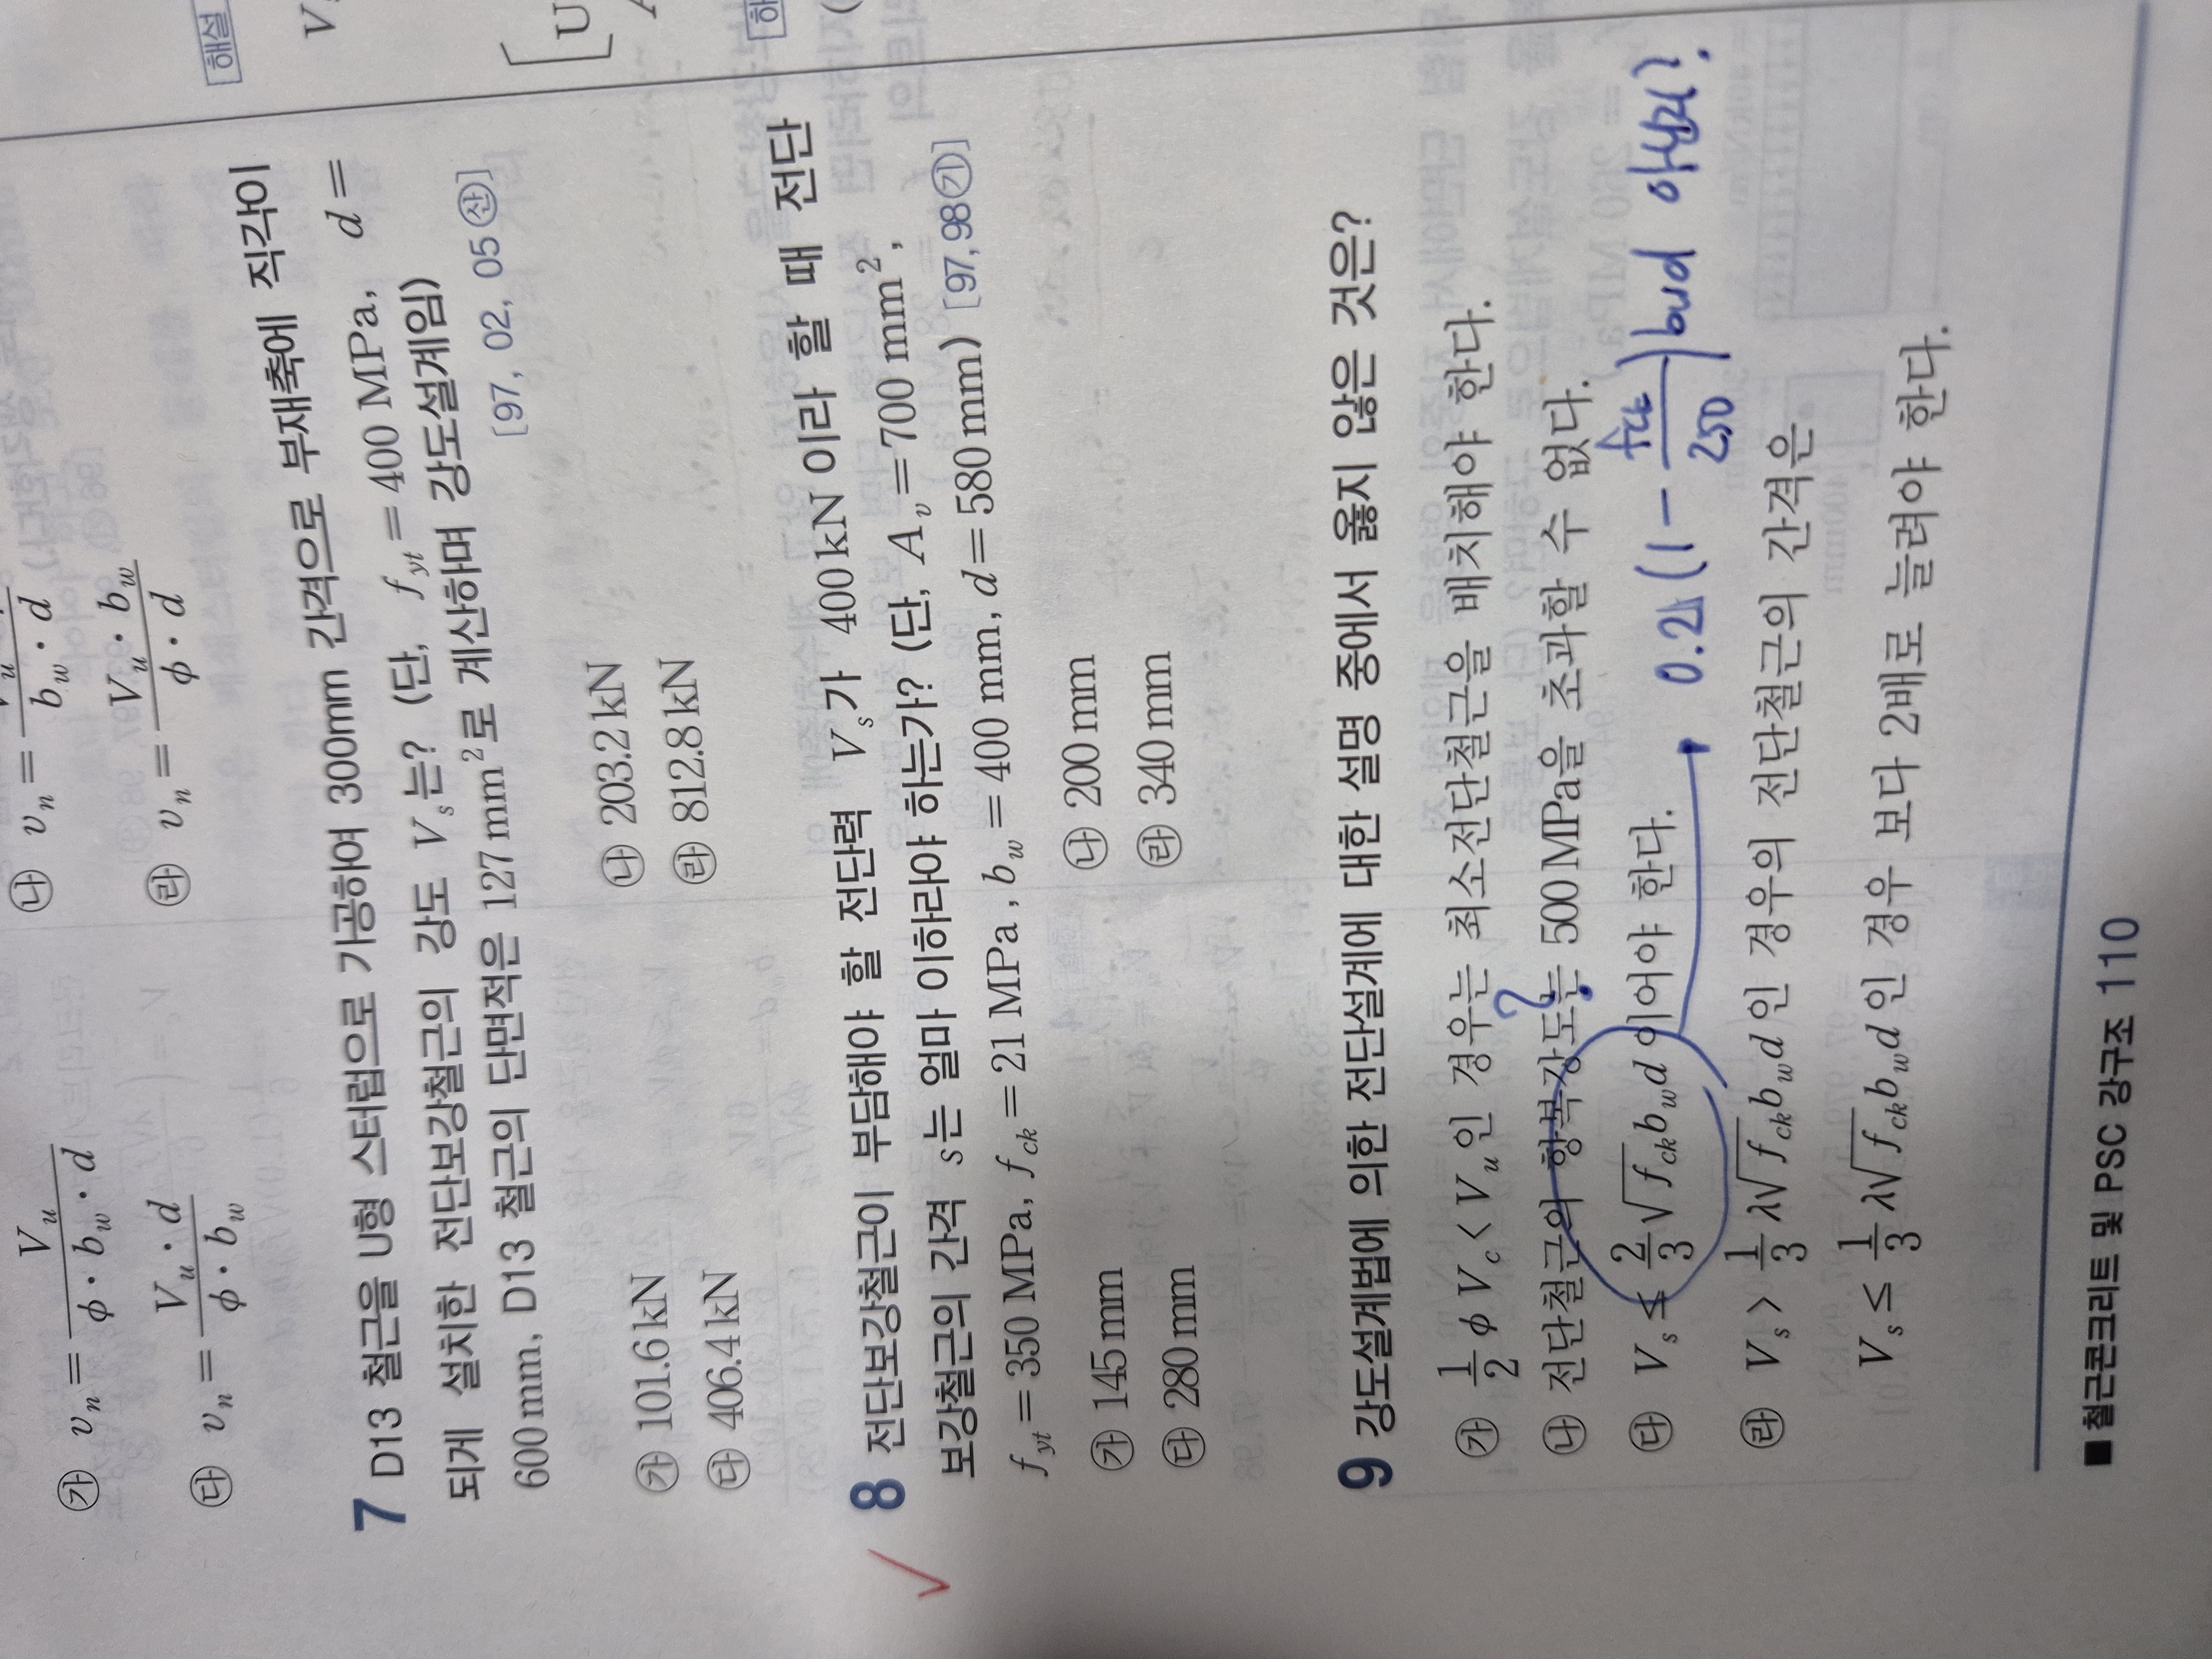 해설
㉮ v_n = V_u / (φ · b_w · d)
㉯ v_n = V_u / (b_w · d)
㉰ v_n = (V_u · d) / (φ · b_w)
㉱ v_n = (V_u · b_w) / (φ · d)
7 D13 철근을 U형 스터럽으로 가공하여 300mm 간격으로 부재축에 직각이
되게 설치한 전단보강철근의 강도 V_s는? (단, f_yt = 400 MPa, d =
600mm, D13 철근의 단면적은 127 mm²로 계산하며 강도설계임)
[97, 02, 05㉦]
㉮ 101.6 kN ㉯ 203.2 kN
㉰ 406.4 kN ㉱ 812.8 kN
8 전단보강철근이 부담해야 할 전단력 V_s가 400 kN 이라 할 때 전단
보강철근의 간격 s는 얼마 이하라야 하는가? (단, A_v = 700 mm²,
f_yt = 350 MPa, f_ck = 21 MPa, b_w = 400 mm, d = 580 mm) [97, 98㉮]
㉮ 145 mm ㉯ 200 mm
㉰ 280 mm ㉱ 340 mm
9 강도설계법에 의한 전단설계에 대한 설명 중에서 옳지 않은 것은?
㉮ 1/2 φ V_c < V_u인 경우는 최소전단철근을 배치해야 한다.
㉯ 전단철근의 항복강도는 500 MPa을 초과할 수 없다.
?
㉰ V_s ≤ 2/3 √f_ck b_w d 이어야 한다.
0.2(1 - fck/250) bwd 아닌지?
㉱ V_s > 1/3 λ√f_ck b_w d 인 경우의 전단철근의 간격은
V_s ≤ 1/3 λ√f_ck b_w d 인 경우 보다 2배로 늘려야 한다.
■ 철근콘크리트 및 PSC 강구조 110